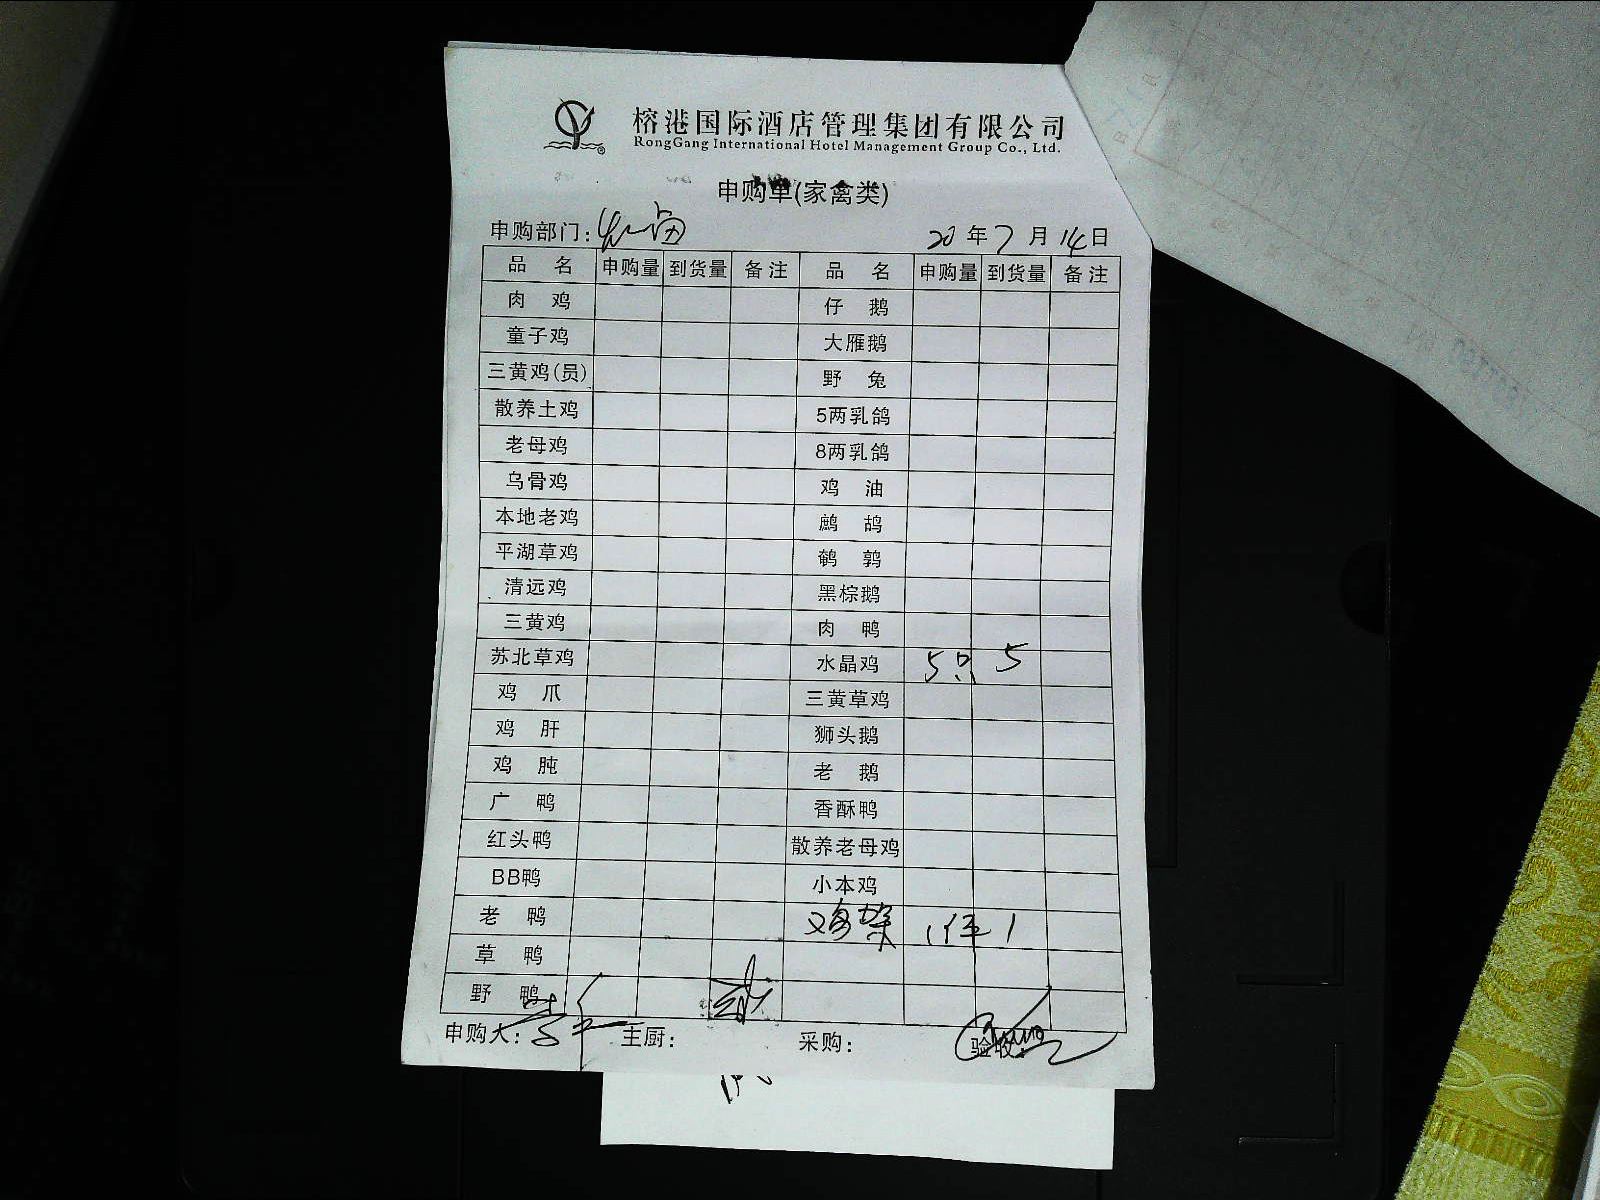 榕港国际酒店管理集团有限公司
RongGang International Hotel Management Group Co., Ltd.
申购单(家禽类)
申购部门:
20 年 7 月 14 日
品 名 申购量 到货量 备注 品 名 申购量 到货量 备注
肉 鸡 仔 鹅
童子鸡 大雁鹅
三黄鸡(员) 野 兔
散养土鸡 5两乳鸽
老母鸡 8两乳鸽
乌骨鸡 鸡 油
本地老鸡 鹧 鸪
平湖草鸡 鹌 鹑
清远鸡 黑棕鹅
三黄鸡 肉 鸭
苏北草鸡 水晶鸡 5只 5
鸡 爪 三黄草鸡
鸡 肝 狮头鹅
鸡 肫 老 鹅
广 鸭 香酥鸭
红头鸭 散养老母鸡
BB鸭 小本鸡
老 鸭 鸡架 1件 1
草 鸭
野 鸭
申购人: 主厨: 采购: 验收: